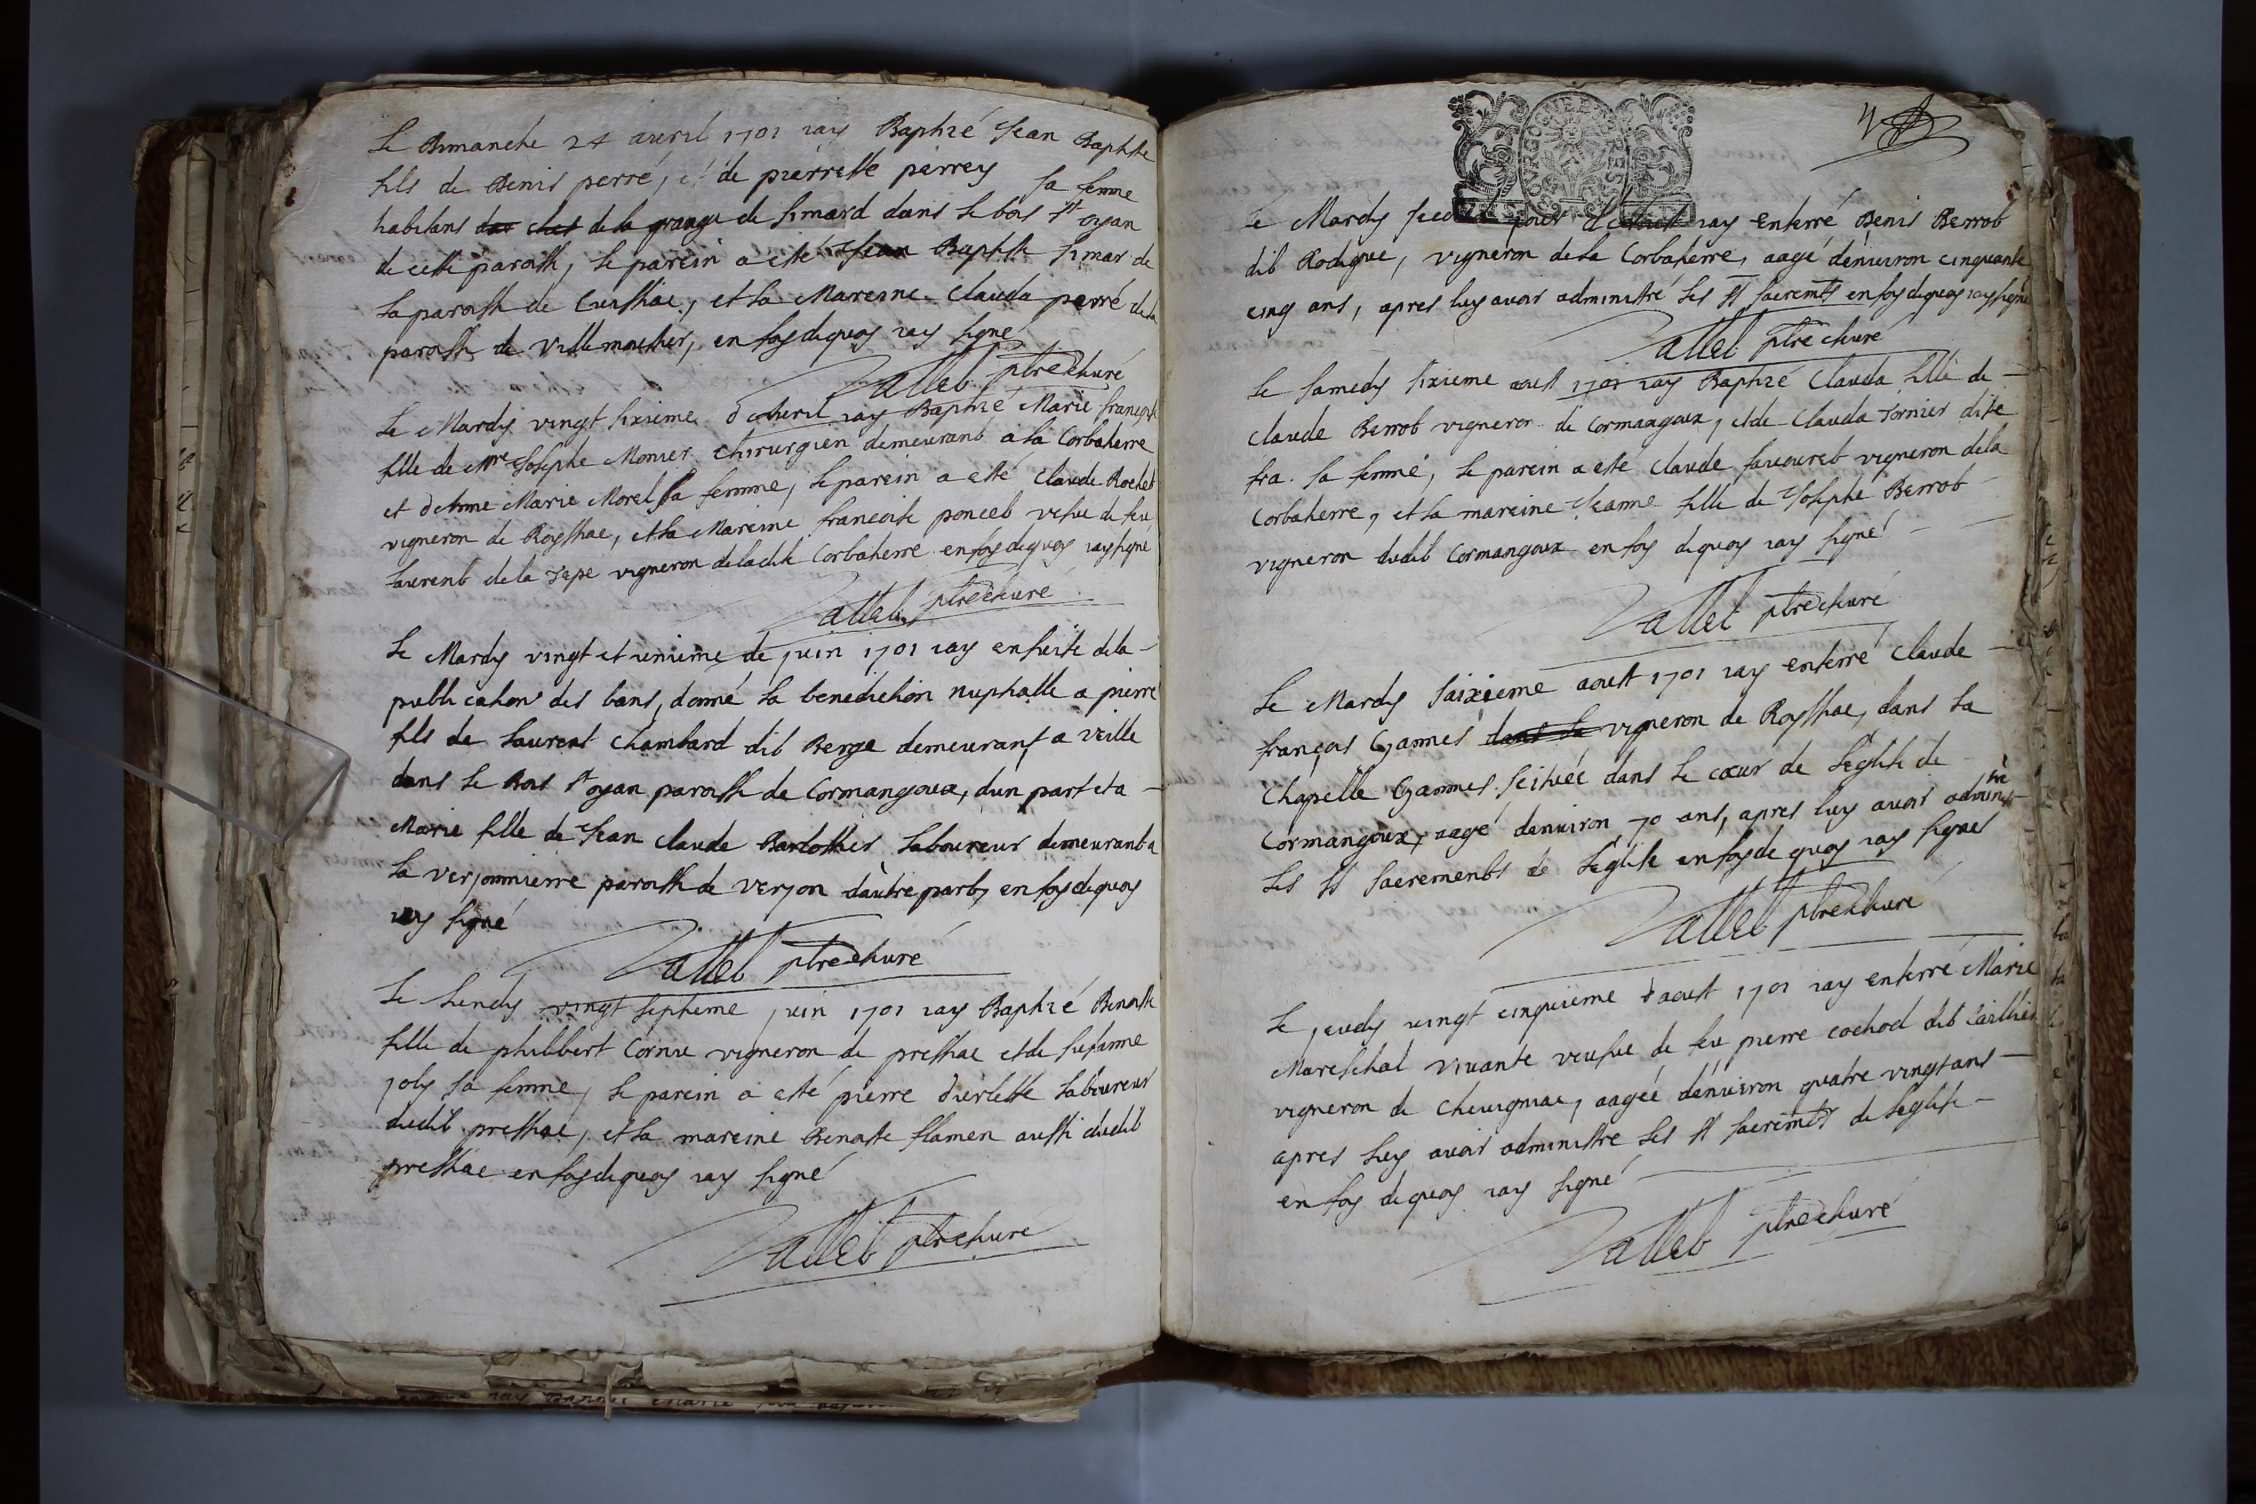 Le Dimanche 24 avril 1701 iay Baptizé Jean Baptiste
fils de Denis perré, et de pierrette perrey sa femme
habitans de la grange de simard dans le bois st oyan
de cette paroisse, le parein a esté Jean Baptiste simar de
la paroisse de Cuissiae, et la Mareine Clauda perré de la
paroisse de Villemoutier, en foy dequoy iay signé
Vallet ptre curé
Le Mardy vingt sixieme d'avril iay Baptizé Marie françoise
fille de Mre Josephe Monier chirurgien demeurant a la Corbaterre
et d'Anne Marie Morel sa femme, le parein a esté Claude Rochet
vigneron de Royssiae, et la Mareine francoise poncet vefve de feu
Laurent de la Tepe vigneron de ladite Corbaterre en foy dequoy iay signé
Vallet ptre curé
Le Mardy vingt et unieme de juin 1701 iay en suite de la
publication des bans, donné la benediction nuptialle a pierre
fils de Laurent Chambard dit Berge demeurant a veille
dans le Bois st oyan paroisse de Cormangoux, dun part et a
Marie fille de Jean Claude Barlottier laboureur demeurant a
la verjonniere paroisse de verjon d'autre part, en foy dequoy
iay signé
Vallet ptre curé
Le Lundy vingt septieme juin 1701 iay Baptizé Benoiste
fille de philibert Cornu vigneron de pressiae et de susanne
joly sa femme, le parein a esté pierre laboureur
dudit pressiae, et la mareine Benoiste flamen aussi dudit
pressiae en foy dequoy iay signé
Vallet ptre curé
Le Mardy jour d'aoust iay enterré Denis Berrod
dit Rodigue, vigneron de la Corbaterre, aagé d'enuiron cinquante
cinq ans, apres luy avoir administré les sts sacremts en foy dequoy iay signé
Vallet ptre curé
Le samedy sixieme aoust 1701 iay Baptizé Clauda fille de
Claude Berrod vigneron de Cormangoux, et de Clauda Tornier dite
fra. sa femme, le parein a esté Claude favouret vigneron de la
Corbaterre, et la mareine Jeanne fille de Josephe Berrod
vigneron dudit Cormangoux en foy dequoy iay signé
Vallet ptre curé
Le Mardy saixieme aoust 1701 iay enterré Claude
françois Gannes dans la vigneron de Royssiae, dans la
chapelle Gannes scituée dans le cœur de l'eglise de
Cormangoux, aagé denuiron 70 ans, apres luy avoir administré
les sts sacrements de l'eglise en foy de quoy iay signé
Vallet ptre curé
Le jeudy vingt cinquieme d'aoust 1701 iay enterré Marie
Mareschal vivante veufve de feu pierre cochod dit
vigneron de Cheuigniae, aagée d'enuiron quatre vingt ans
apres luy avoir administré les sts sacremts de l'eglise
en foy dequoy iay signé
Vallet ptre curé